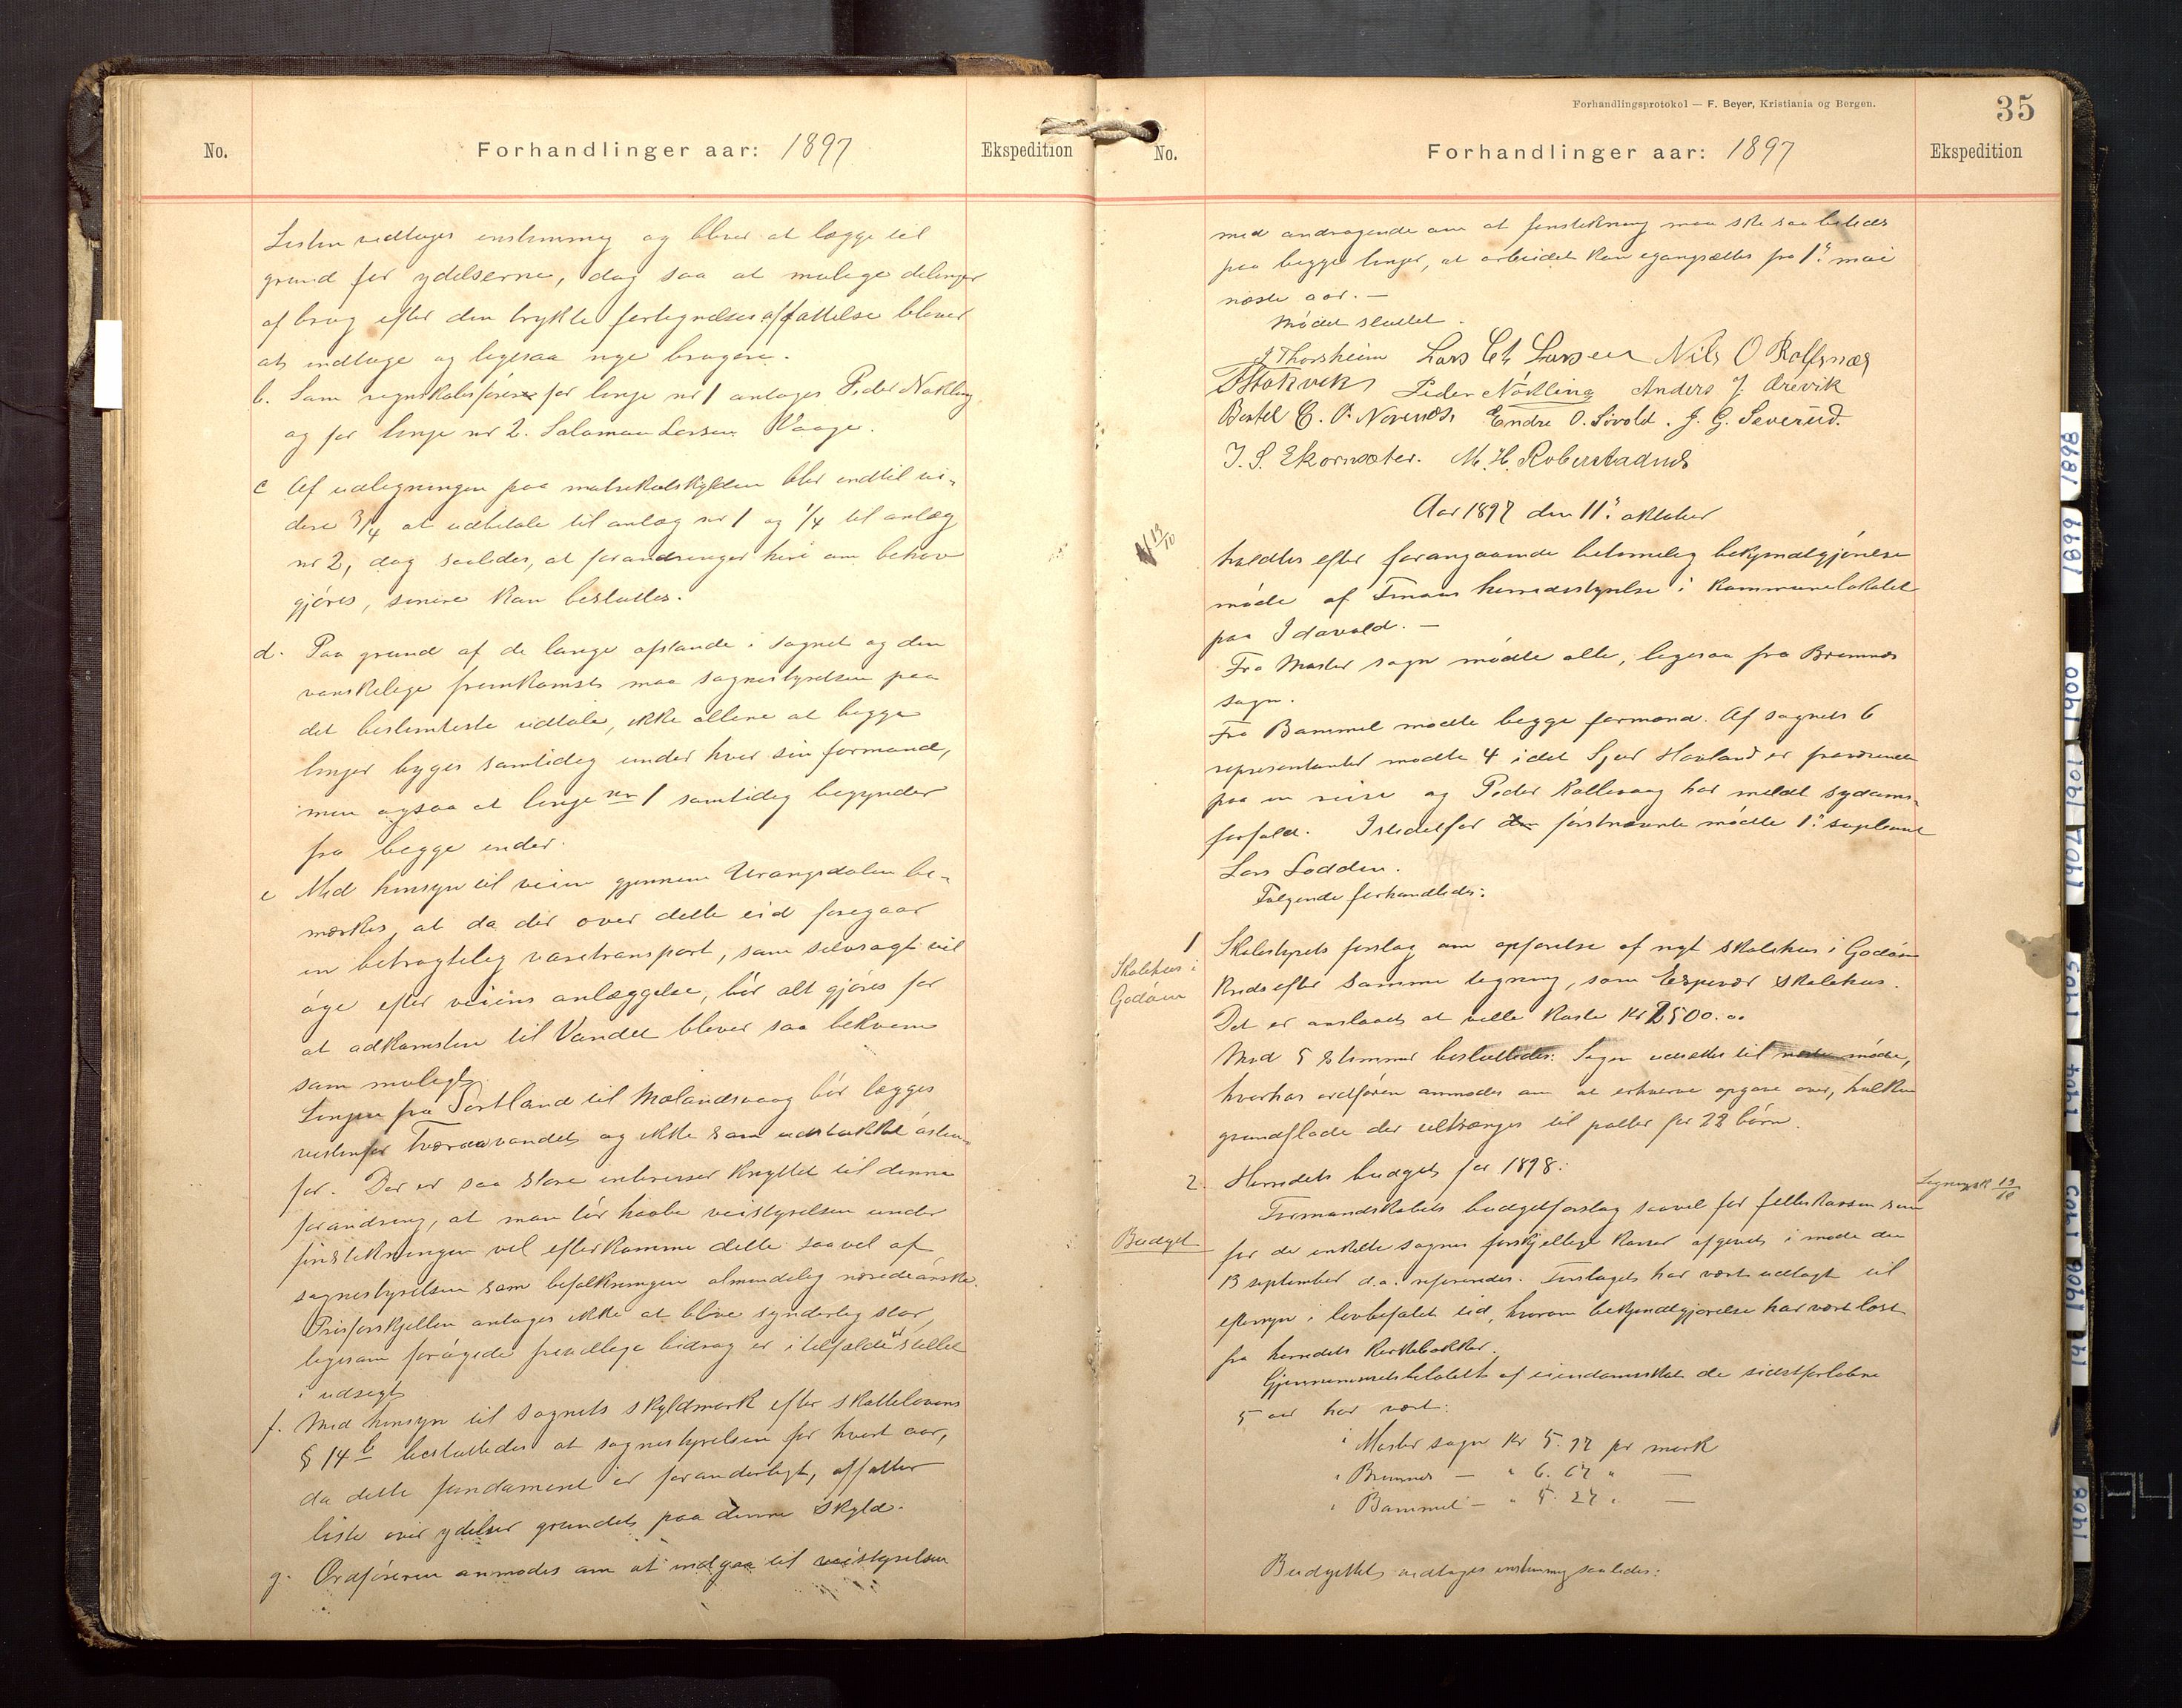 No.
Forhandlinger aar: 1897
Ekspedition
Listen vedtages enstemmig og bliver at lægge til
grund for ydelserne, dog saa at mulige delinger
af brug efter den trykte fortegnelses affattelse bliver
at indtage og ligesaa nye brugere.
b. Som regnskabsfører for linje nr 1 antages Peder Nökling
og for linje nr 2. Salamon Larsen Vaage.
c Af udligningen paa matrikulskylden blir indtil vi-
dere 3/4 at udbetale til anlæg nr 1 og 1/4 til anlæg
nr 2, dog saaledes, at forandringer heri om behov
gjöres, senere kan besluttes.
d. Paa grund af de lange afstande i sognet og den
vanskelige fremkomst maa sognestyrelsen paa
det bestemteste udtale, ikke allene at begge
linjer byges samtidig under hver sin formand,
men ogsaa at linje nr 1 samtidig begynder
fra begge ender.
e Med hensyn til veien gjennem Urangsdalen be-
mærkes, at da der over dette eid foregaar
en betragtelig varetransport, som selvsagt vil
öge efter veiens anlæggelse, bör alt gjöres for
at adkomsten til Vandet bliver saa bekvem
som muligt.
Linjen fra Sortland til Mælandsvaag bör lægges
vestenfor Tveraavandet og ikke som udstukket östen-
for. Der er saa store interesser knyttet til denne
forandring, at man tör haabe veistyrelsen under
finstikningen vil efterkomme dette saavel af
sognestyrelsen som befolkningen almindelig nærede önske.
Prisforskjellen antages ikke at blive synderlig stor,
ligesom forögede frivillige bidrag er i tilfælde stillet
i udsigt
f. Med hensyn til sognets skyldmark efter skattelovens
§ 14 b besluttedes at sognestyrelsen for hvert aar,
da dette fundament er foranderligt, affatter
liste over ydelser grundet paa denne skyld.
g. Ordföreren anmodes om at indgaa til veistyrelsen
Forhandlingsprotokol — F. Beyer, Kristiania og Bergen.
35
No.
Forhandlinger aar: 1897
Ekspedition
med andragende om at finstikning maa ske saa betids
paa begge linjer, at arbeidet kan igangsættes fra 1ste mai
næste aar. —
Mödet sluttet.
J Thorsheim Lars Ch Larsen Nils O Rolfsnæs
Peder Nökling Anders J. Ærevik
Bertel C. O. Endre O. Sivold. J. G. Severud.
J. S. Ekornsæter. M. H.
Aar 1897 den 11te oktober
13/10
holdtes efter forangaaende betimelig bekjendtgjörelse
möde af Finaas herredsstyrelse i kommunelokalet
paa Idavold. —
Fra Moster sogn mödte alle, ligesaa fra Bremnes
sogn.
Fra Bømmel mödte begge formænd. Af sognets 6
representanter mödte 4 idet Sjur Hovland er fraværende
paa en reise og Peder Kallevaag har meldt sygdoms-
forfald. Istedetfor förstnævnte mödte 1ste supleant
Lars Lodden.
Fölgende forhandledes:
1
Skolehus i
Godöen
Skolestyrets forslag om opförelse af nyt skolehus i Godöen
kreds efter samme tegning, som Espevær skolehus.
Det er anslaaet at ville koste kr 2500.00
Med 5 stemmer besluttedes: Sagen udsættes til næste möde,
hvorhos ordfören anmodes om at erhverve opgave over, hvilken
grundflade der udkræves til pulter for 28 börn.
2.
Budget
Herredets budget for 1898:
13/10
Formandskabets budgetforslag saavel for felleskassen som
for de enkelte sognes forskjellige kasser afgivet i möde den
13 september d.a. refereredes. Forslaget har været udlagt til
eftersyn i lovbefalet tid, hvorom bekjendtgjörelse har været læst
fra herredets kirkebakker.
Gjennemsnitsbelöbet af eiendomsskat de sidstforlöbne
5 aar har været:
i Moster sogn kr 5.97 pr mark
" Bremnes — " 6.67 " —
" Bømmel — " 5.27 " —
Budgettet vedtages enstemmig saaledes:
1898
1899
1900
1901
1902
1903
1904
1905
1906
1908